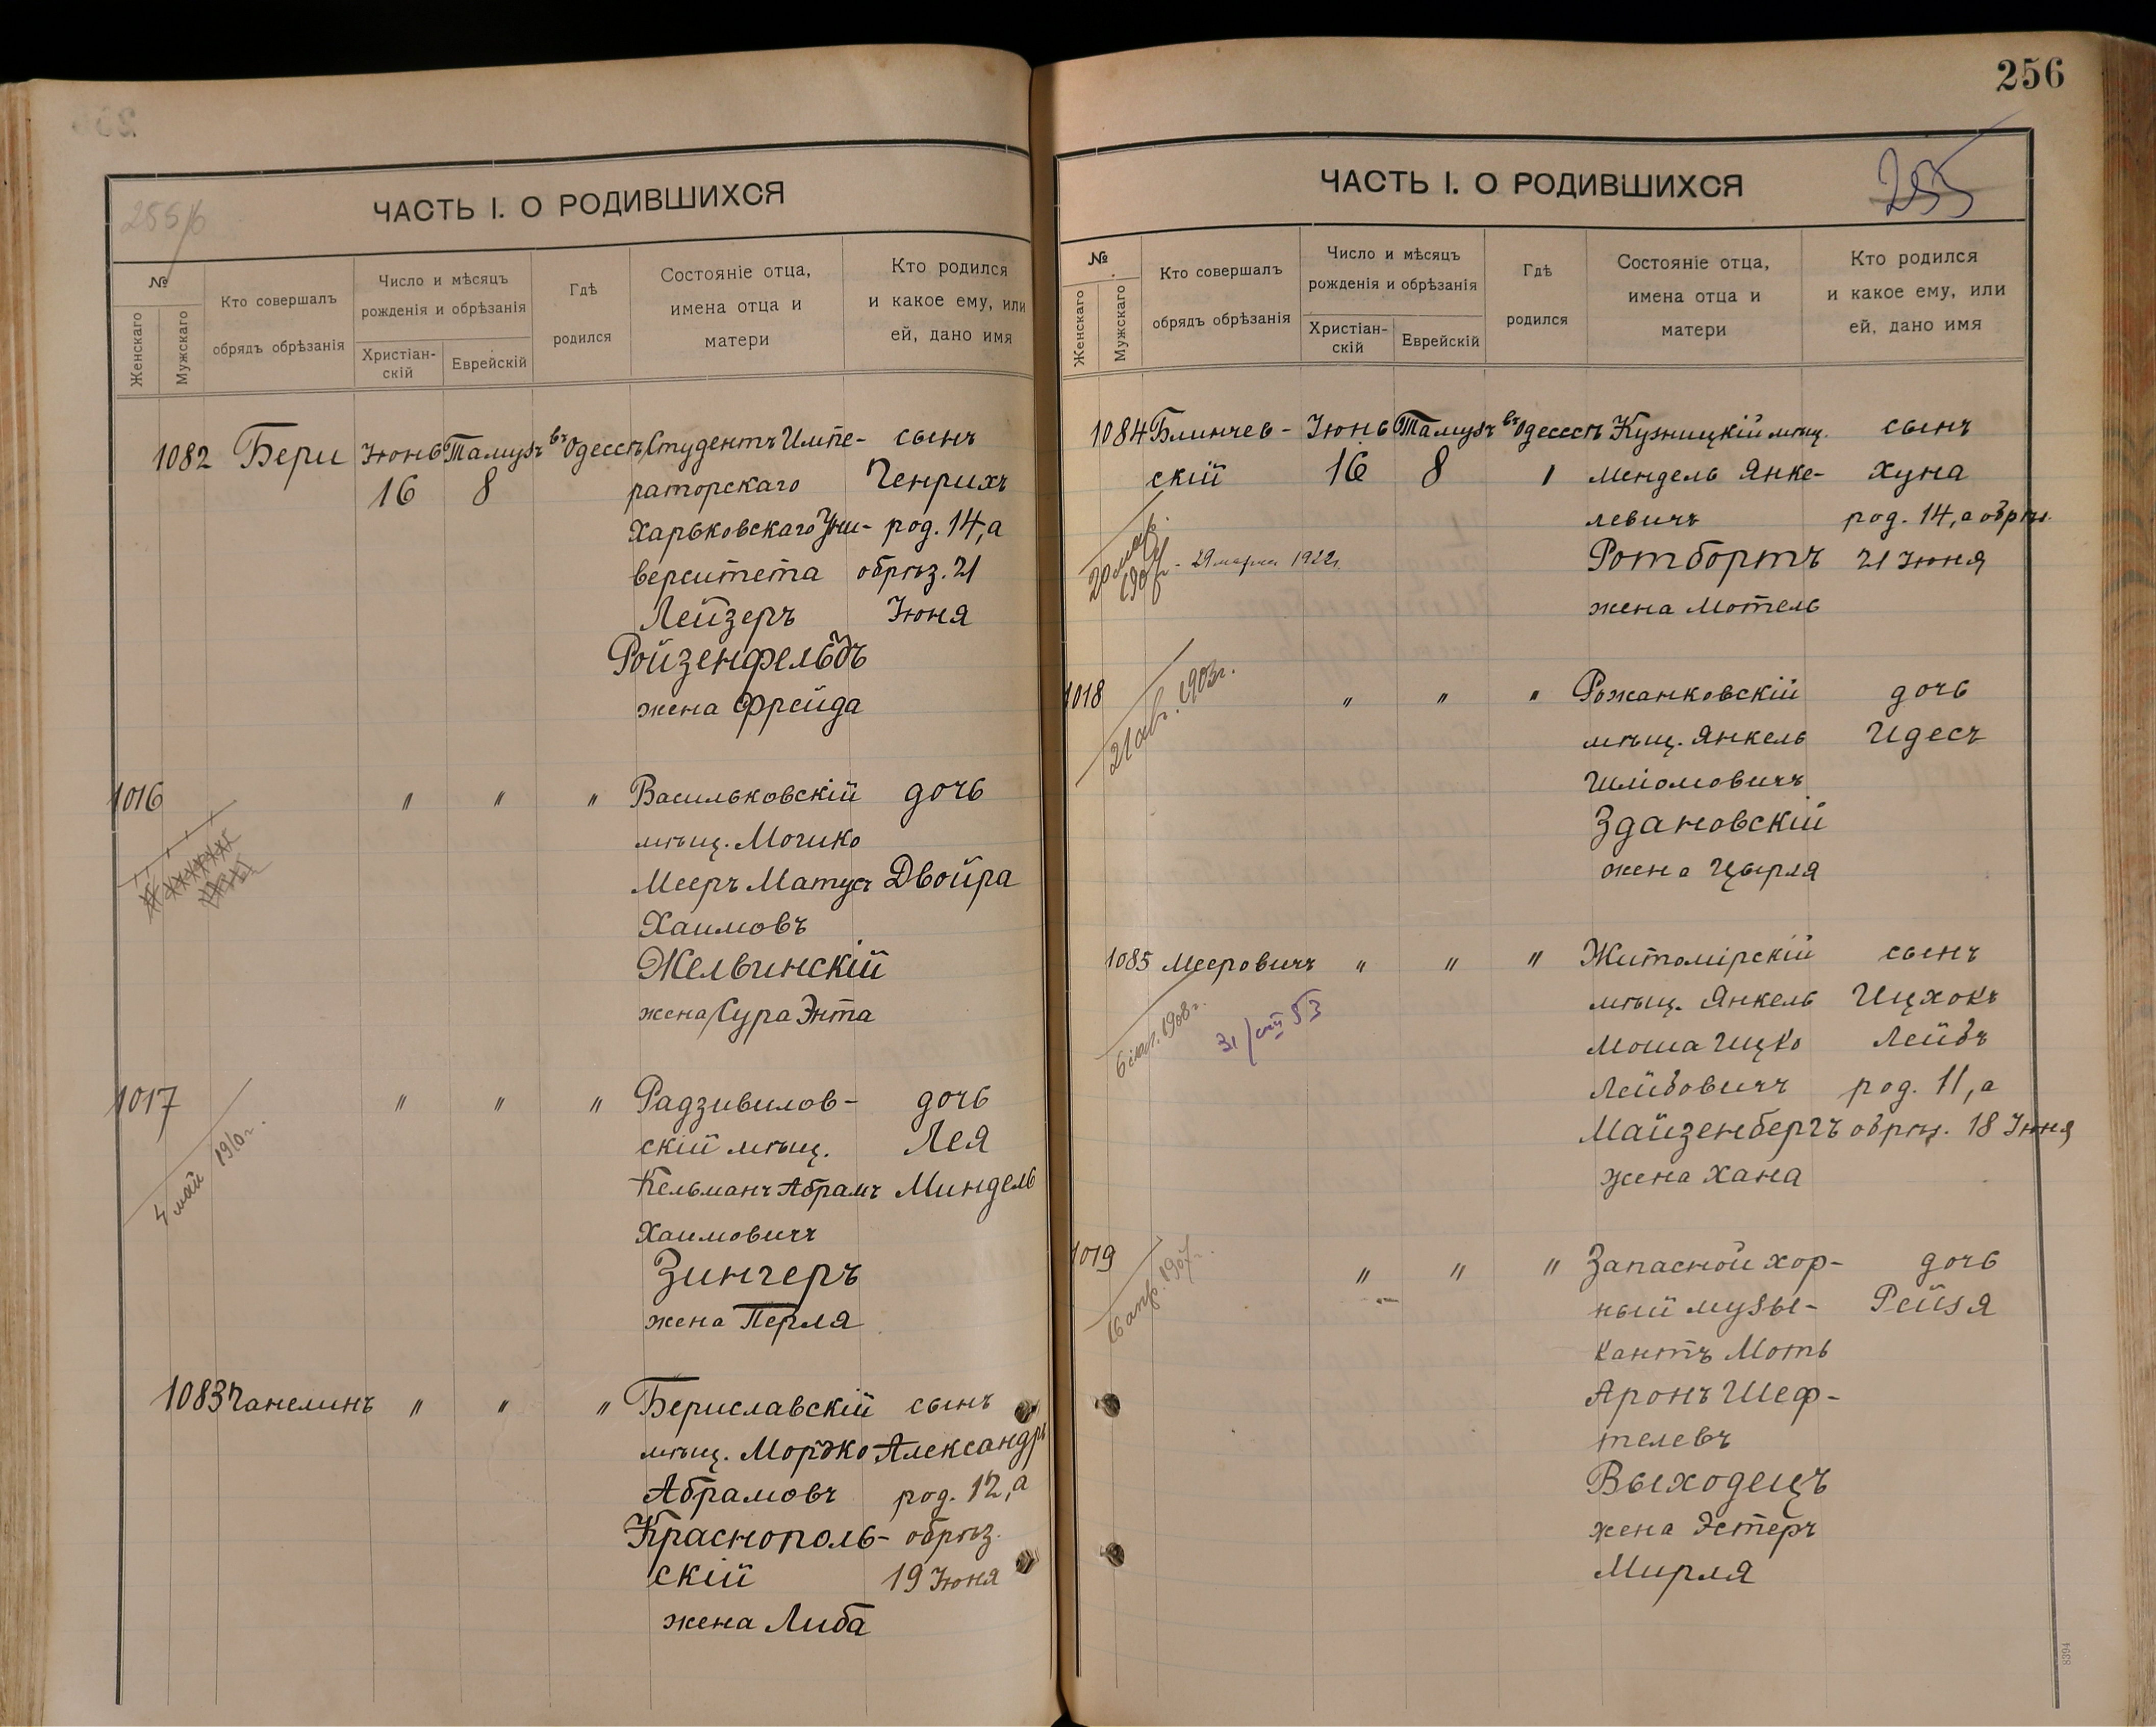 256
255/б
ЧАСТЬ I. О РОДИВШИХСЯ
№
Женскаго
Мужскаго
Кто совершалъ
обрядъ обрѣзанія
Число и мѣсяцъ
рожденія и обрѣзанія
Христіан-
скій
Еврейскій
Гдѣ
родился
Состояніе отца,
имена отца и
матери
Кто родился
и какое ему, или
ей, дано имя
1082 Бери Іюнь Тамузъ въ Одессѣ Студентъ Импе- сынъ
16 8 раторскаго Генрихъ
Харьковскаго Уни- род. 14, а
верситета обрѣз. 21
Лейзеръ Іюня
Ройзенфельдъ
жена Фрейда
1016 " " " Васильковскій дочь
мѣщ. Мошко
Мееръ Матусъ Двойра
Хаимовъ
Желвинскій
жена Сура Энта
1017 " " " Радзивилов- дочь
скій мѣщ. Лея
Кельманъ Абрамъ Миндель
Хаимовичъ
4 май 1910 г.
Зингеръ
жена Перля
1083 Чанелинъ " " " Бериславскій сынъ
мѣщ. Мордко Александръ
Абрамовъ род. 12, а
Краснополь- обрѣз.
скій 19 Іюня
жена Либа
ЧАСТЬ I. О РОДИВШИХСЯ
255
№
Женскаго
Мужскаго
Кто совершалъ
обрядъ обрѣзанія
Число и мѣсяцъ
рожденія и обрѣзанія
Христіан-
скій
Еврейскій
Гдѣ
родился
Состояніе отца,
имена отца и
матери
Кто родился
и какое ему, или
ей, дано имя
1084 Блинчев- Іюнь Тамузъ въ Одессѣ Кузницкій мѣщ. сынъ
скій 16 8 Мендель Янке- Хуна
левичъ род. 14, а обрѣз.
29 марта 1922 г. Ротбортъ 21 Іюня
жена Мотель
1018 " " " Рожанковскій дочь
21 авг. 1903 г.
мѣщ. Янкель Идесъ
Шліомовичъ
Здановскій
жена Цырля
1085 Мееровичъ " " " Житомірскій сынъ
мѣщ. Янкель Ицхокъ
1908 г.
Моша Ицко Лейбъ
Лейбовичъ род. 11, а
Майзенбергъ обрѣз. 18 Іюня
жена Хана
1019 " " " Запасной хор- дочь
16 апр. 1907 г.
ный музы- Рейзя
кантъ Моть
Аронъ Шеф-
телевъ
Выходецъ
жена Эстеръ
Мирля
8394